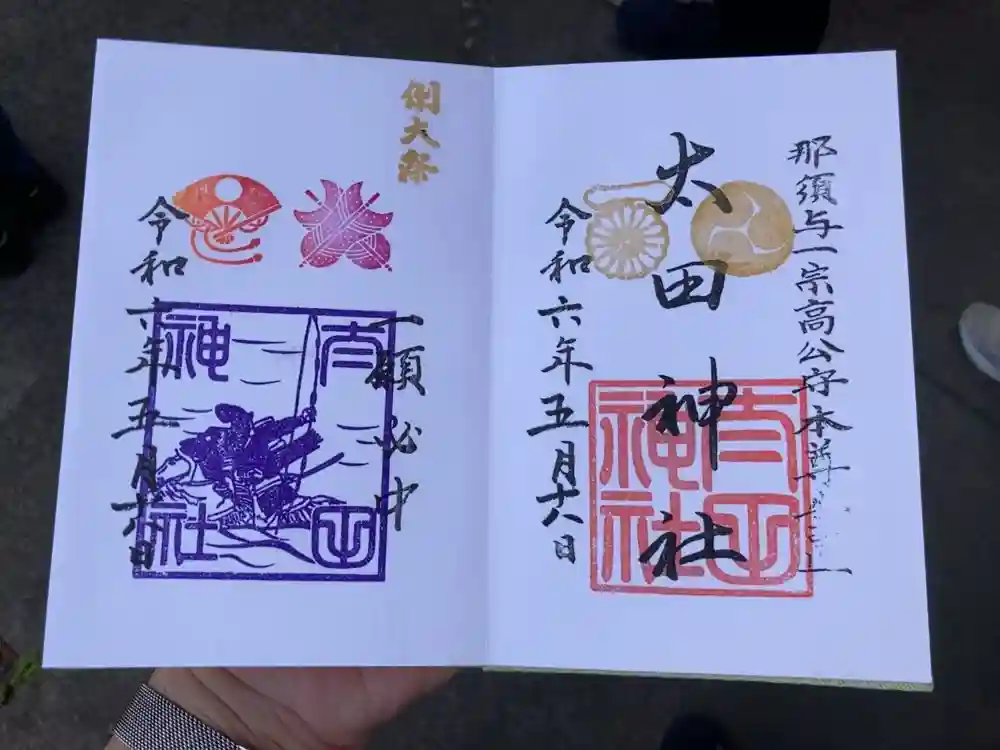 那須与一宗高公守本尊
太田神社
太田
神社
令和六年五月十八日
例大祭
一願必中
太田
神社
令和六年五月十八日